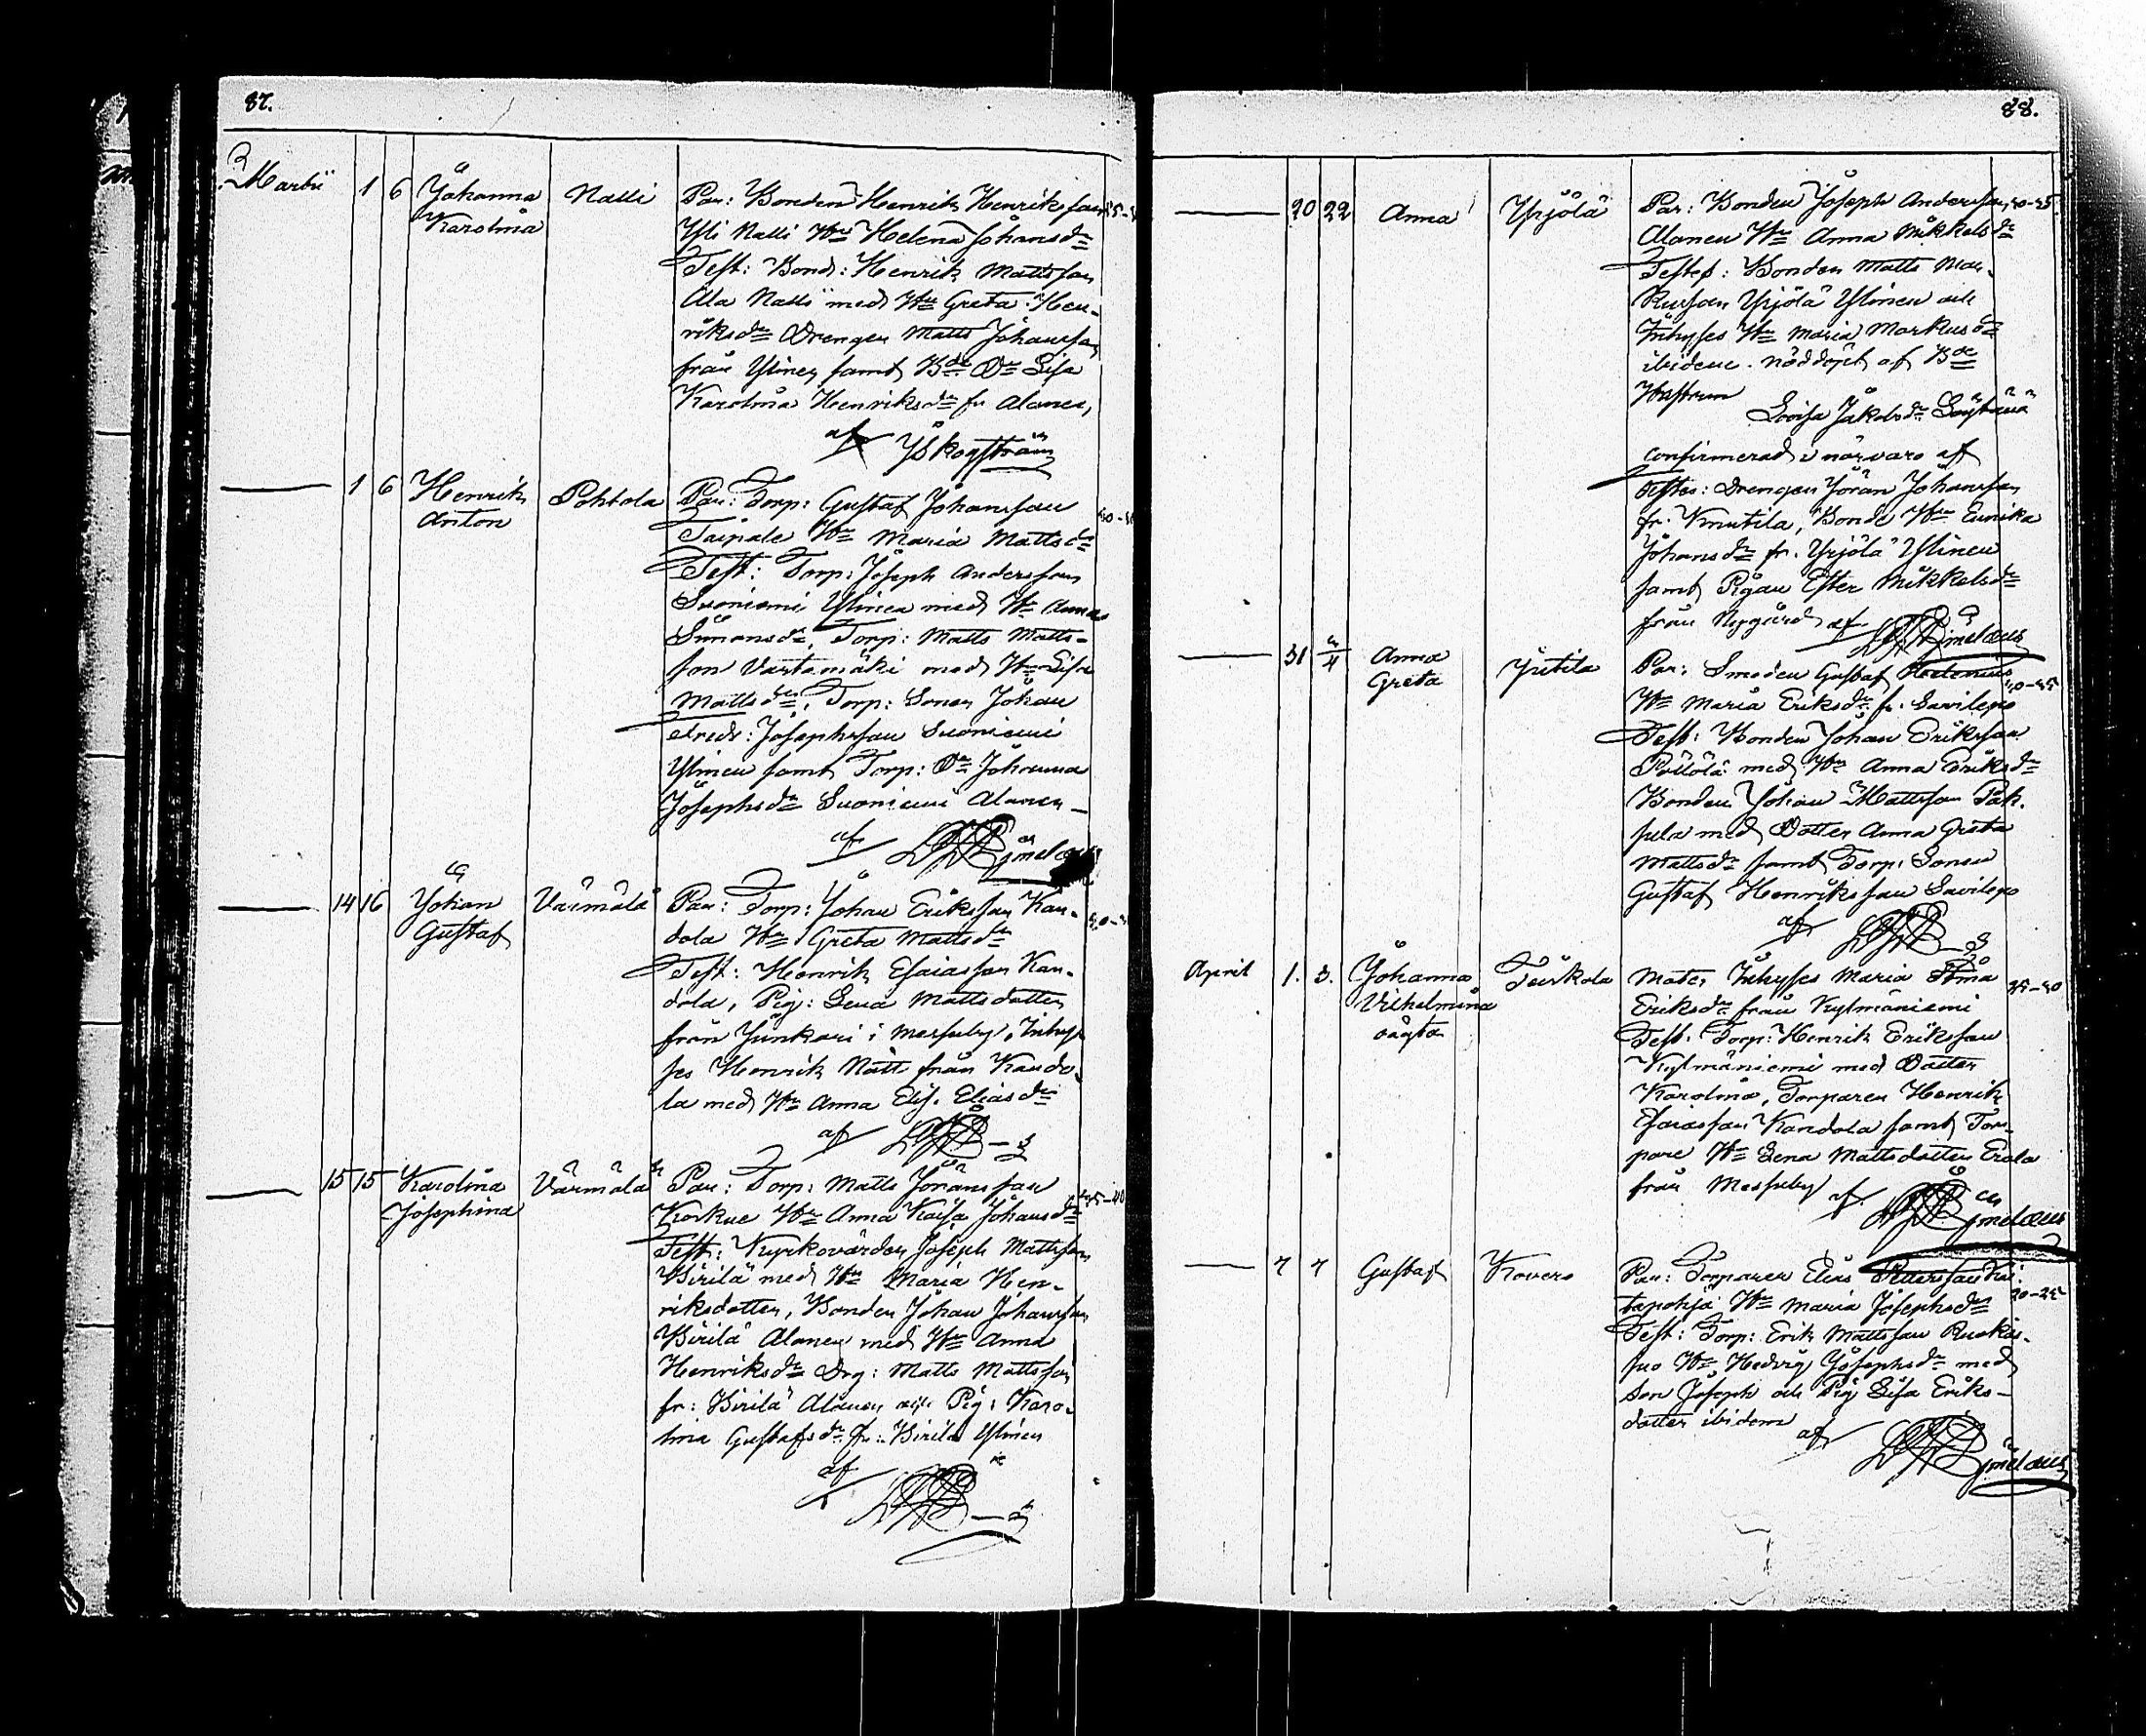 87.
Martii 1 6 Johanna Karolina Nalli
Par: Bonden Henrik Henriksson
Yli Nalli Hu Helena Johansdr
Test: Bond: Henrik Mattsson
Ala Nalli med Hu Greta Hen-
riksdr Drengen Matts Johansson
från Ylinen samt Bde Dr Lisa
Karolina Henriksdr fr Alanen,
af Skogström
1 6 Henrik Anton Pohtola
Par: Torp: Gustaf Johansson
Taipale Hu Maria Mattsdr
Test: Torp: Joseph Andersson
Suoniemi Ylinen med Hu Anna
Simonsdr, Torp: Matts Matts-
son Vartamäki med Hu Lisa
Mattsdr, Torp: Sonen Johan
Josephsson Suoniemi
Ylinen samt Torp: Dr Johanna
Josephsdr Suoniemi Alanen
af
14 16 Johan Gustaf Värmälä
Par: Torp: Johan Eriksson Kan-
dola Hu Greta Mattsdr
Test: Henrik Esaiasson Kan-
dola, Pig: Lena Mattsdotter
från Junkari i Messuby, Inhys
ses Henrik Matts från Kando-
la med Hu Anna Elis. Eliasdr
af
15 15 Karolina Josephina Värmälä
Par: Torp: Matts Jöransson
Korkue Hu Anna Kaisa Johansdr 35-40
Test: Kyrkovärden Joseph Mattsson
Birilä med Hu Maria Hen-
riksdotter, Bonden Johan Johansson
Birilä Alanen med Hu Anna
Henriksdr Drg: Matts Mattsson
fr: Birilä Alanen och Pig: Karo-
lina Gustafsdr fr: Birilä Ylinen
af
88.
20 22 Anna Yrjölä
Par: Bonden Joseph Andersson
Alanen Hu Anna Mikkelsdr
Testes: Bonden Matts Mar-
kusson Yrjölä Ylinen och
Inhyses Hu Maria Markusdr
ibidem. nöddöpt af Bde
Hustrun
Lovisa Jakobsdr
confirmerad i närvaro af
Testes: Drengen Jöran Johansson
fr. Knutila, Bonde Hu Eunika
Johansdr fr. Yrjölä Ylinen
samt Pigan Ester Mikkelsdr
från Nygård af
31 Anna Greta Yritila
Par: Smeden Gustaf
Hu Maria Eriksdr fr. Savilepo
Test: Bonden Johan Eriksson
Pöllölä med Hu Anna Eriksdr
Bonden Johan Mattsson Pak-
sula med Dotter Anna Greta
Mattsdr samt Torp: Sonen
Gustaf Henriksson Savilepo
af
April 1. 3. Johanna Vilhelmina oägta Teiskola
Mater Inhyses Maria Stina 35-40
Eriksdr från Kylmäniemi
Test: Torp: Henrik Eriksson
Kylmäniemi med Dotter
Karolina, Torparen Henrik
Esaiasson Kandola samt Tor-
pare Hu Lena Mattsdotter Erola
från Messuby af
7 7 Gustaf Kovero
Par: Torparen Elias Pettersson Ku-
tapohja Hu Maria Josephsdr 20-25
Test: Torp: Erik Mattsson Ruokis-
suo Hu Hedvig Josephsdr med
Son Joseph och Pig Lisa Eriks-
dotter ibidem
af